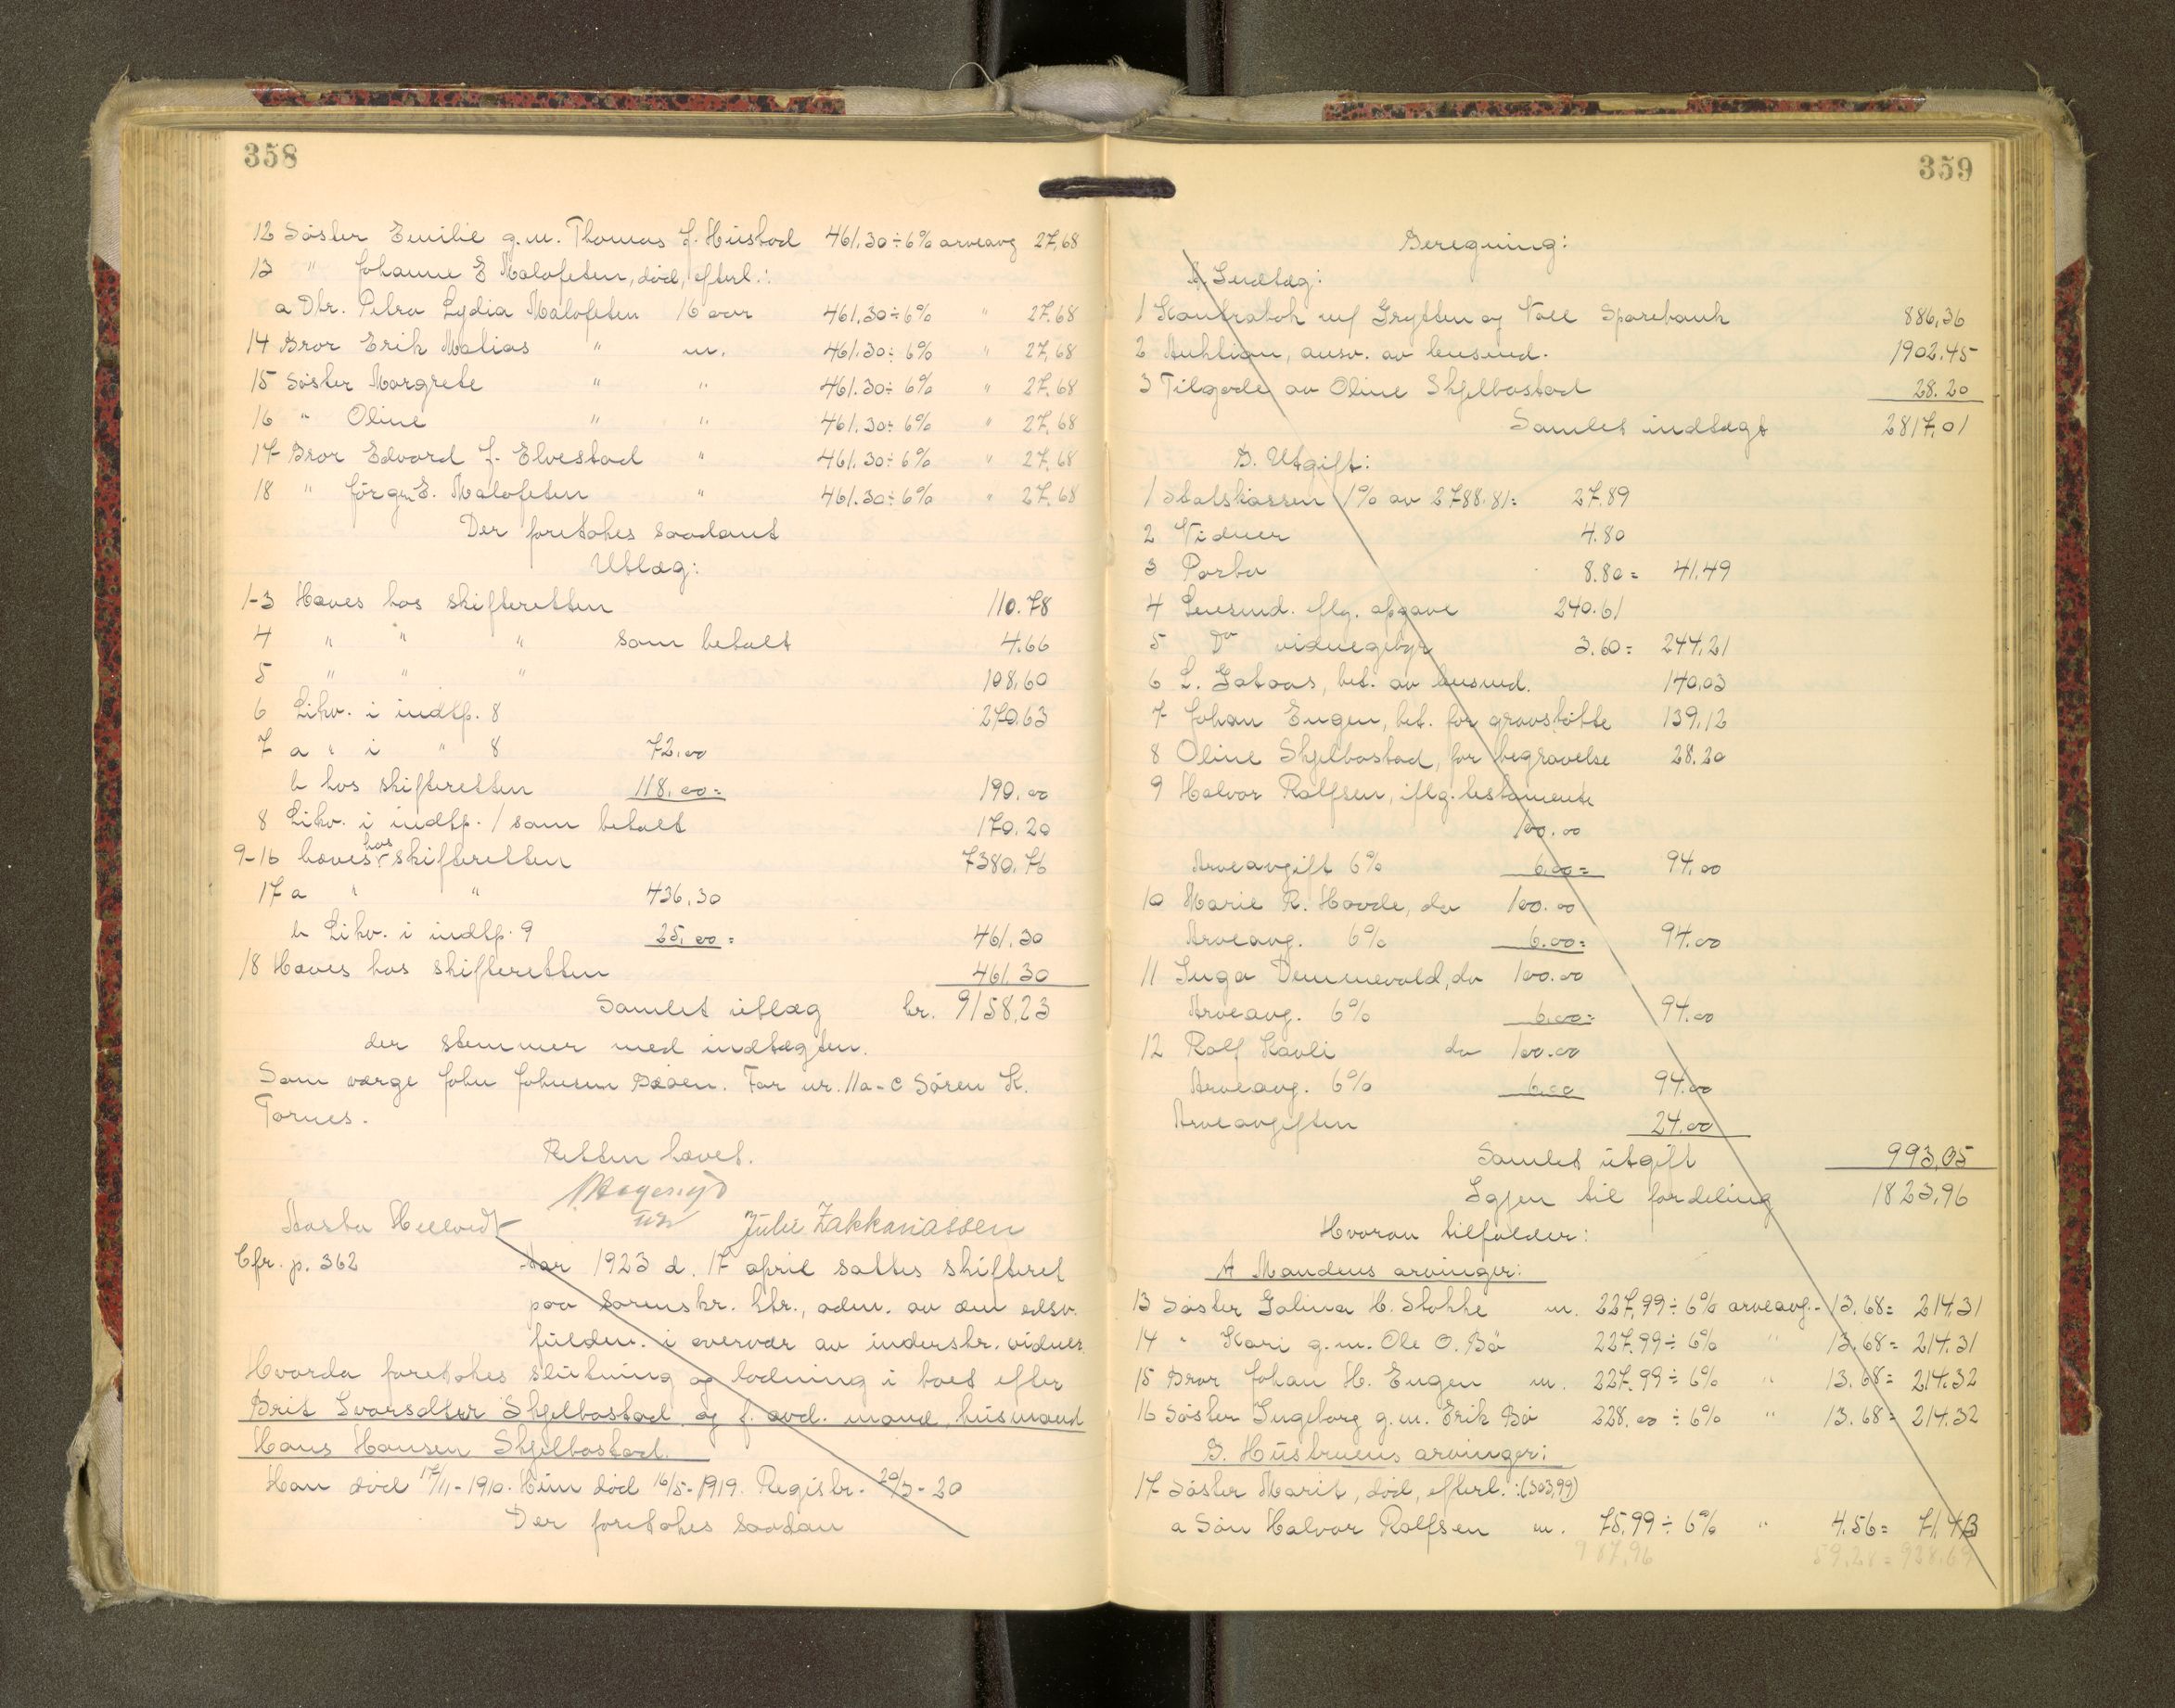 358
12 Søster Emilie g.m. Thomas J. Hustad 461.30 ÷ 6% arveavg 27,68
13 " Johanne E Malofeten, død, efterl.:
a Dtr. Petra Lydia Malofeten 16 aar 461.30 ÷ 6% " 27.68
14 Bror Erik Malias " m. 461.30 ÷ 6% " 27,68
15 Søster Margrete " " 461.30 ÷ 6% " 27.68
16 " Oline " " 461.30 ÷ 6% " 27.68
17 Bror Edvard J. Elvestad " 461.30 ÷ 6% " 27.68
18 " Jörgen E. Malofeten " 461.30 ÷ 6% " 27.68
Der foretokes saadant
Utlæg:
1-3 Haves hos skifteretten 110.78
4 " " " som betalt 4.66
5 " " " 108,60
6 Likv. i indtp. 8 270.63
7 a " i " 8 72.00
b hos skifteretten 118.00 = 190.00
8 Likv. i indtp. 1 som betalt 170.20
9-16 haves hos skifteretten 7380.76
17 a " " 436,30
b Likv. i indtp. 9 25,00 = 461.30
18 Haves hos skifteretten 461.30
Samlet utlæg kr. 9158,23
der stemmer med indtægten.
Som værge John Johnsen Bøen. For nr. 11a-c Sören K.
Tornes.
Retten hævet.
Julie Zakkariassen
Cfr. p. 362 Aar 1923 d. 17 april sattes skifteret
paa sorenskr. ktr., adm. av den edsv.
fuldm. i overvær av underskr. vidner.
Hvorda foretokes slutning og lodning i boet efter
Brit Ivarsdtter Skjelbostad og f. avd. mand, husmand
Hans Hansen Skjelbostad.
Han død 17/11-1910. Hun død 16/5-1919. Registr. 20/3-20
Der foretokes saadan
359
Beregning:
A. Indtæg:
1 Kontrabok m/ Grytten og Voll Sparebank 886,36
2 Auktion, ansv. av lensmd. 1902.45
3 Tilgode av Oline Skjelbostad 28.20
Samlet indtægt 2817,01
B. Utgift:
1 Statskassen 1% av 2788.81 = 27.89
2 Vidner 4.80
3 Porto 8.80 = 41.49
4 Lensmd. iflg. opgave 240.61
5 Do vidnegebyr 3.60 = 244,21
6 L. Gataas, bet. av lensmd. 140,03
7 Johan Engen, bet. for gravstøtte 139.12
8 Oline Skjelbostad, for begravelse 28.20
9 Halvor Rolfsen, iflg. testamente
100.00
Arveavgift 6% 6.00 = 94.00
10 Marie R. Hovde, do 100.00
Arveavg. 6% 6.00 = 94.00
11 Inga Venmevold, do 100.00
Arveavg. 6% 6.00 = 94.00
12 Rolf Kavli do 100.00
Arveavg. 6% 6.00 94.00
Arveavgiften 24.00
Samlet utgift 993,05
Igjen til fordeling 1823,96
Hvorav tilfalder:
A Mandens arvinger:
13 Søster Golina H. Stokke m. 227,99 ÷ 6% arveavg. - 13.68 = 214,31
14 " Kari g.m. Ole O. Bø 227.99 ÷ 6% " 13.68 = 214.31
15 Bror Johan H. Engen m. 227.99 ÷ 6% " 13.68 = 214.32
16 Søster Ingeborg g.m. Erik Bø 228.00 ÷ 6% " 13.68 = 214.32
B. Hustruens arvinger:
17 Søster Marit, død, efterl.: (303,99)
a Søn Halvor Rolfsen m. 75.99 ÷ 6% " 4.56 = 71.43